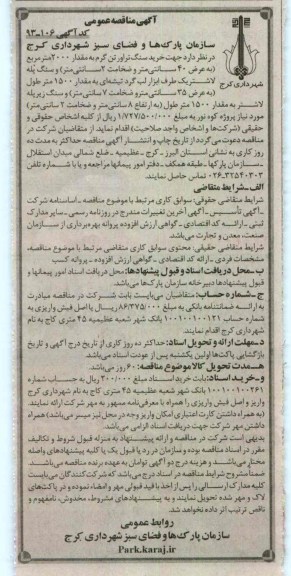 آگهی مناقصه عمومی
کد آگهی ۱۰۶-۹۳
سازمان پارک‌ها و فضای سبز شهرداری کرج
شهرداری کرج
در نظر دارد جهت خرید سنگ تراورتن گرم به مقدار ۲۰۰۰ مترمربع
(به عرض ۴۰ سانتی‌متر و ضخامت ۲ سانتی‌متر) و سنگ پله
لاشتر یک طرف ابزار لب گرد تیشه‌ای به مقدار ۱۵۰۰ متر طول
(به عرض ۳۵ سانتی‌متر و ضخامت ۷ سانتی‌متر) و سنگ زیر پله
لاشتر به مقدار ۱۵۰۰ متر طول (به ارتفاع ۸ سانتی‌متر و ضخامت ۲ سانتی‌متر)
مورد نیاز پروژه کوه نور به مبلغ ۱/۷۲۷/۵۰۰/۰۰۰ ریال از کلیه اشخاص حقوقی و
حقیقی (شرکت‌ها و اشخاص واجد صلاحیت) اقدام نمایند از متقاضیان شرکت در
مناقصه دعوت می‌گردد از تاریخ چاپ و انتشار آگهی مناقصه حداکثر به مدت ده
روز کاری به نشانی استان البرز ـ کرج ـ عظیمیه ـ ضلع شمالی میدان استقلال
ـ سازمان پارکها ـ طبقه همکف ـ دفتر امور پیمانها مراجعه و یا با شماره تلفن
۰۲۶-۳۲۵۴۰۳۰۳ تماس حاصل نمایند.
الف ـ شرایط متقاضی
شرایط متقاضی حقوقی: سوابق کاری مرتبط با موضوع مناقصه، ـ اساسنامه شرکت
ـ آگهی تأسیس ـ آگهی آخرین تغییرات مندرج در روزنامه رسمی ـ سایر مدارک
ثبتی ـ ارائـه کد اقتصادی ـ گواهی ارزش افزوده پروانه بهره‌برداری از سازمان
صنعت، معدن و تجارت می‌باشد.
شرایط متقاضی حقیقی: محتوی سوابق کاری متقاضی مرتبط با موضوع مناقصه،
مشخصات فردی ـ ارائه کد اقتصادی ـ گواهی ارزش افزوده ـ پروانه کسب
ب ـ محل دریافت اسناد و قبول پیشنهادها: محل دریافت اسناد امور پیمانها و
قبول پیشنهادها دبیرخانه سازمان پارک‌ها می‌باشد.
ج ـ شماره حساب: متقاضیان می‌بایست بابت شرکت در مناقصه مبادرت
به ارائه ضمانتنامه بانکی به مبلغ ۸۶/۳۷۵/۰۰۰ ریال یا اصل فیش واریزی به
شماره حساب ۱۰۰۱۰۰۱۰۰۱۲۱ بانک شهر شعبه عظیمیه ۴۵ متری کاج به نام
شهرداری کرج اقدام نمایند.
د ـ مهلت ارائه و تحویل اسناد: حداکثر ده روز کاری از تاریخ درج آگهی و تاریخ
بازگشایی پاکت‌ها اولین یکشنبه پس از عودت اسناد می‌باشد.
هـ ـ مدت تحویل کالا موضوع مناقصه: ۶۰ روز می‌باشد.
و ـ خرید اسناد: بابت خرید اسناد مبلغ ۳۰۰/۰۰۰ ریال به حساب شماره
۱۰۰۱۰۰۱۰۰۲۶۱ بانک شهر شعبه عظیمیه ۴۵ متری کاج به نام شهرداری کرج
واریز و اصل فیش واریزی را همراه با معرفی‌نامه ممهور به مهر شرکت ارائه نمایند.
(به همراه داشتن کارت اعتباری امکان واریز وجه در محل نیز میسر می‌باشد) همراه
داشتن مهر شرکت جهت دریافت اسناد الزامی می‌باشد.
بدیهی است شرکت در مناقصه و ارائه پیشنهـاد به منزله قبول شروط و تکالیف
مقرر در اسناد مناقصه بوده و سازمان در رد یا قبول یک یا کلیه پیشنهادهای واصله
مختار می‌باشد و هزینه درج دو آگهی توأمان به عهده برنده مناقصه می‌باشد.
ضمناً مشروح شرایط مناقصه در اسناد درج می‌باشد که شرکت‌کنندگان می‌بایست
کلیه مدارک ارسالی را پس از اخذ با قید قبولی مهر و امضاء نموده و در پاکت‌های
لاک و مهر شده تحویل نمایند و به پیشنهادهای مشروط، مخدوش، نامفهوم و
ناقص ترتیب اثر داده نخواهد شد.
روابط عمومی
سازمان پارک‌ها و فضای سبز شهرداری کرج
Park.karaj.ir